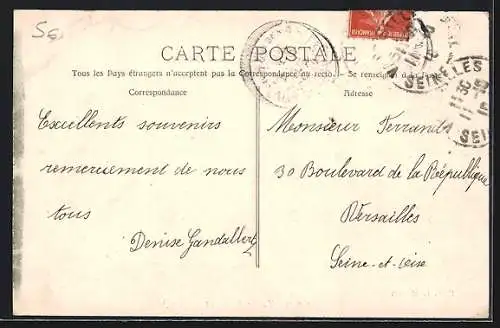 56
CARTE POSTALE
Tous les Pays étrangers n'acceptent pas la Correspondance au recto. Se renseigner à la Poste
Correspondance
Adresse
Excellents souvenirs
remerciement de nous
tous
Denise
Monsieur
30 Boulevard de la République
Versailles
Seine-et-Oise